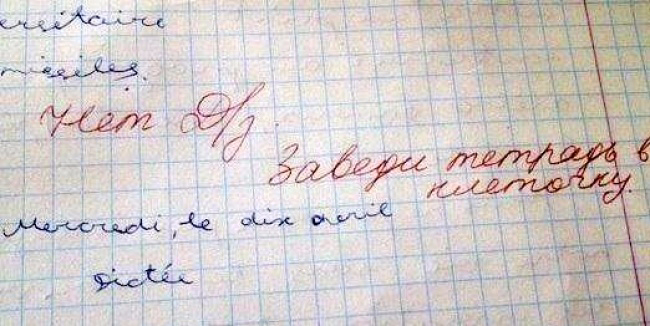 ersitaire
missiles.
Нет Д/з.
Заведи тетрадь в
клеточку.
Mercredi, le dix avril
dictée